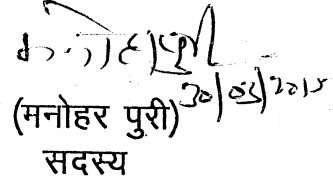 30/03/2015
(मनोहर पुरी)
सदस्य